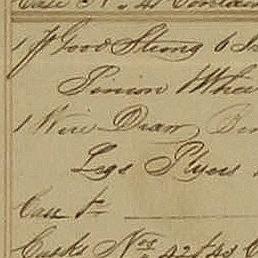 Case No 41 Contain
1 pr Good Strong 6 In
Pinion Whee
1 Wire Draw
Legs Plyers
Case
Casks Nos 42 & 43 C